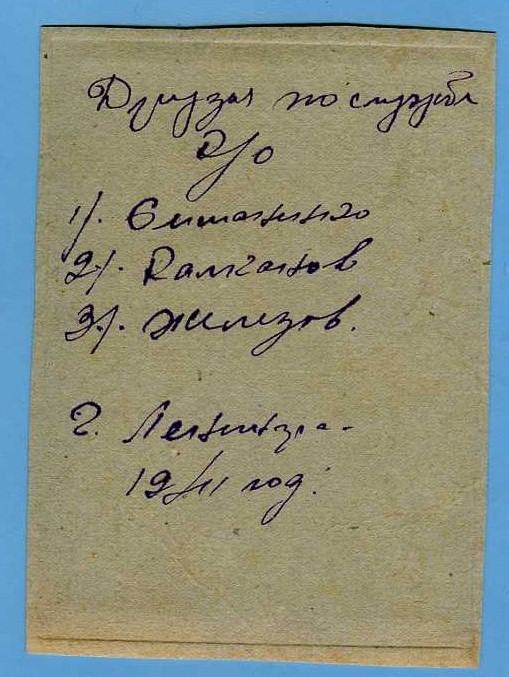 Друзья по службе
1/. Симаненко
2/. Калганов
3/. Железов.
г. Ленингра-
1941 год.